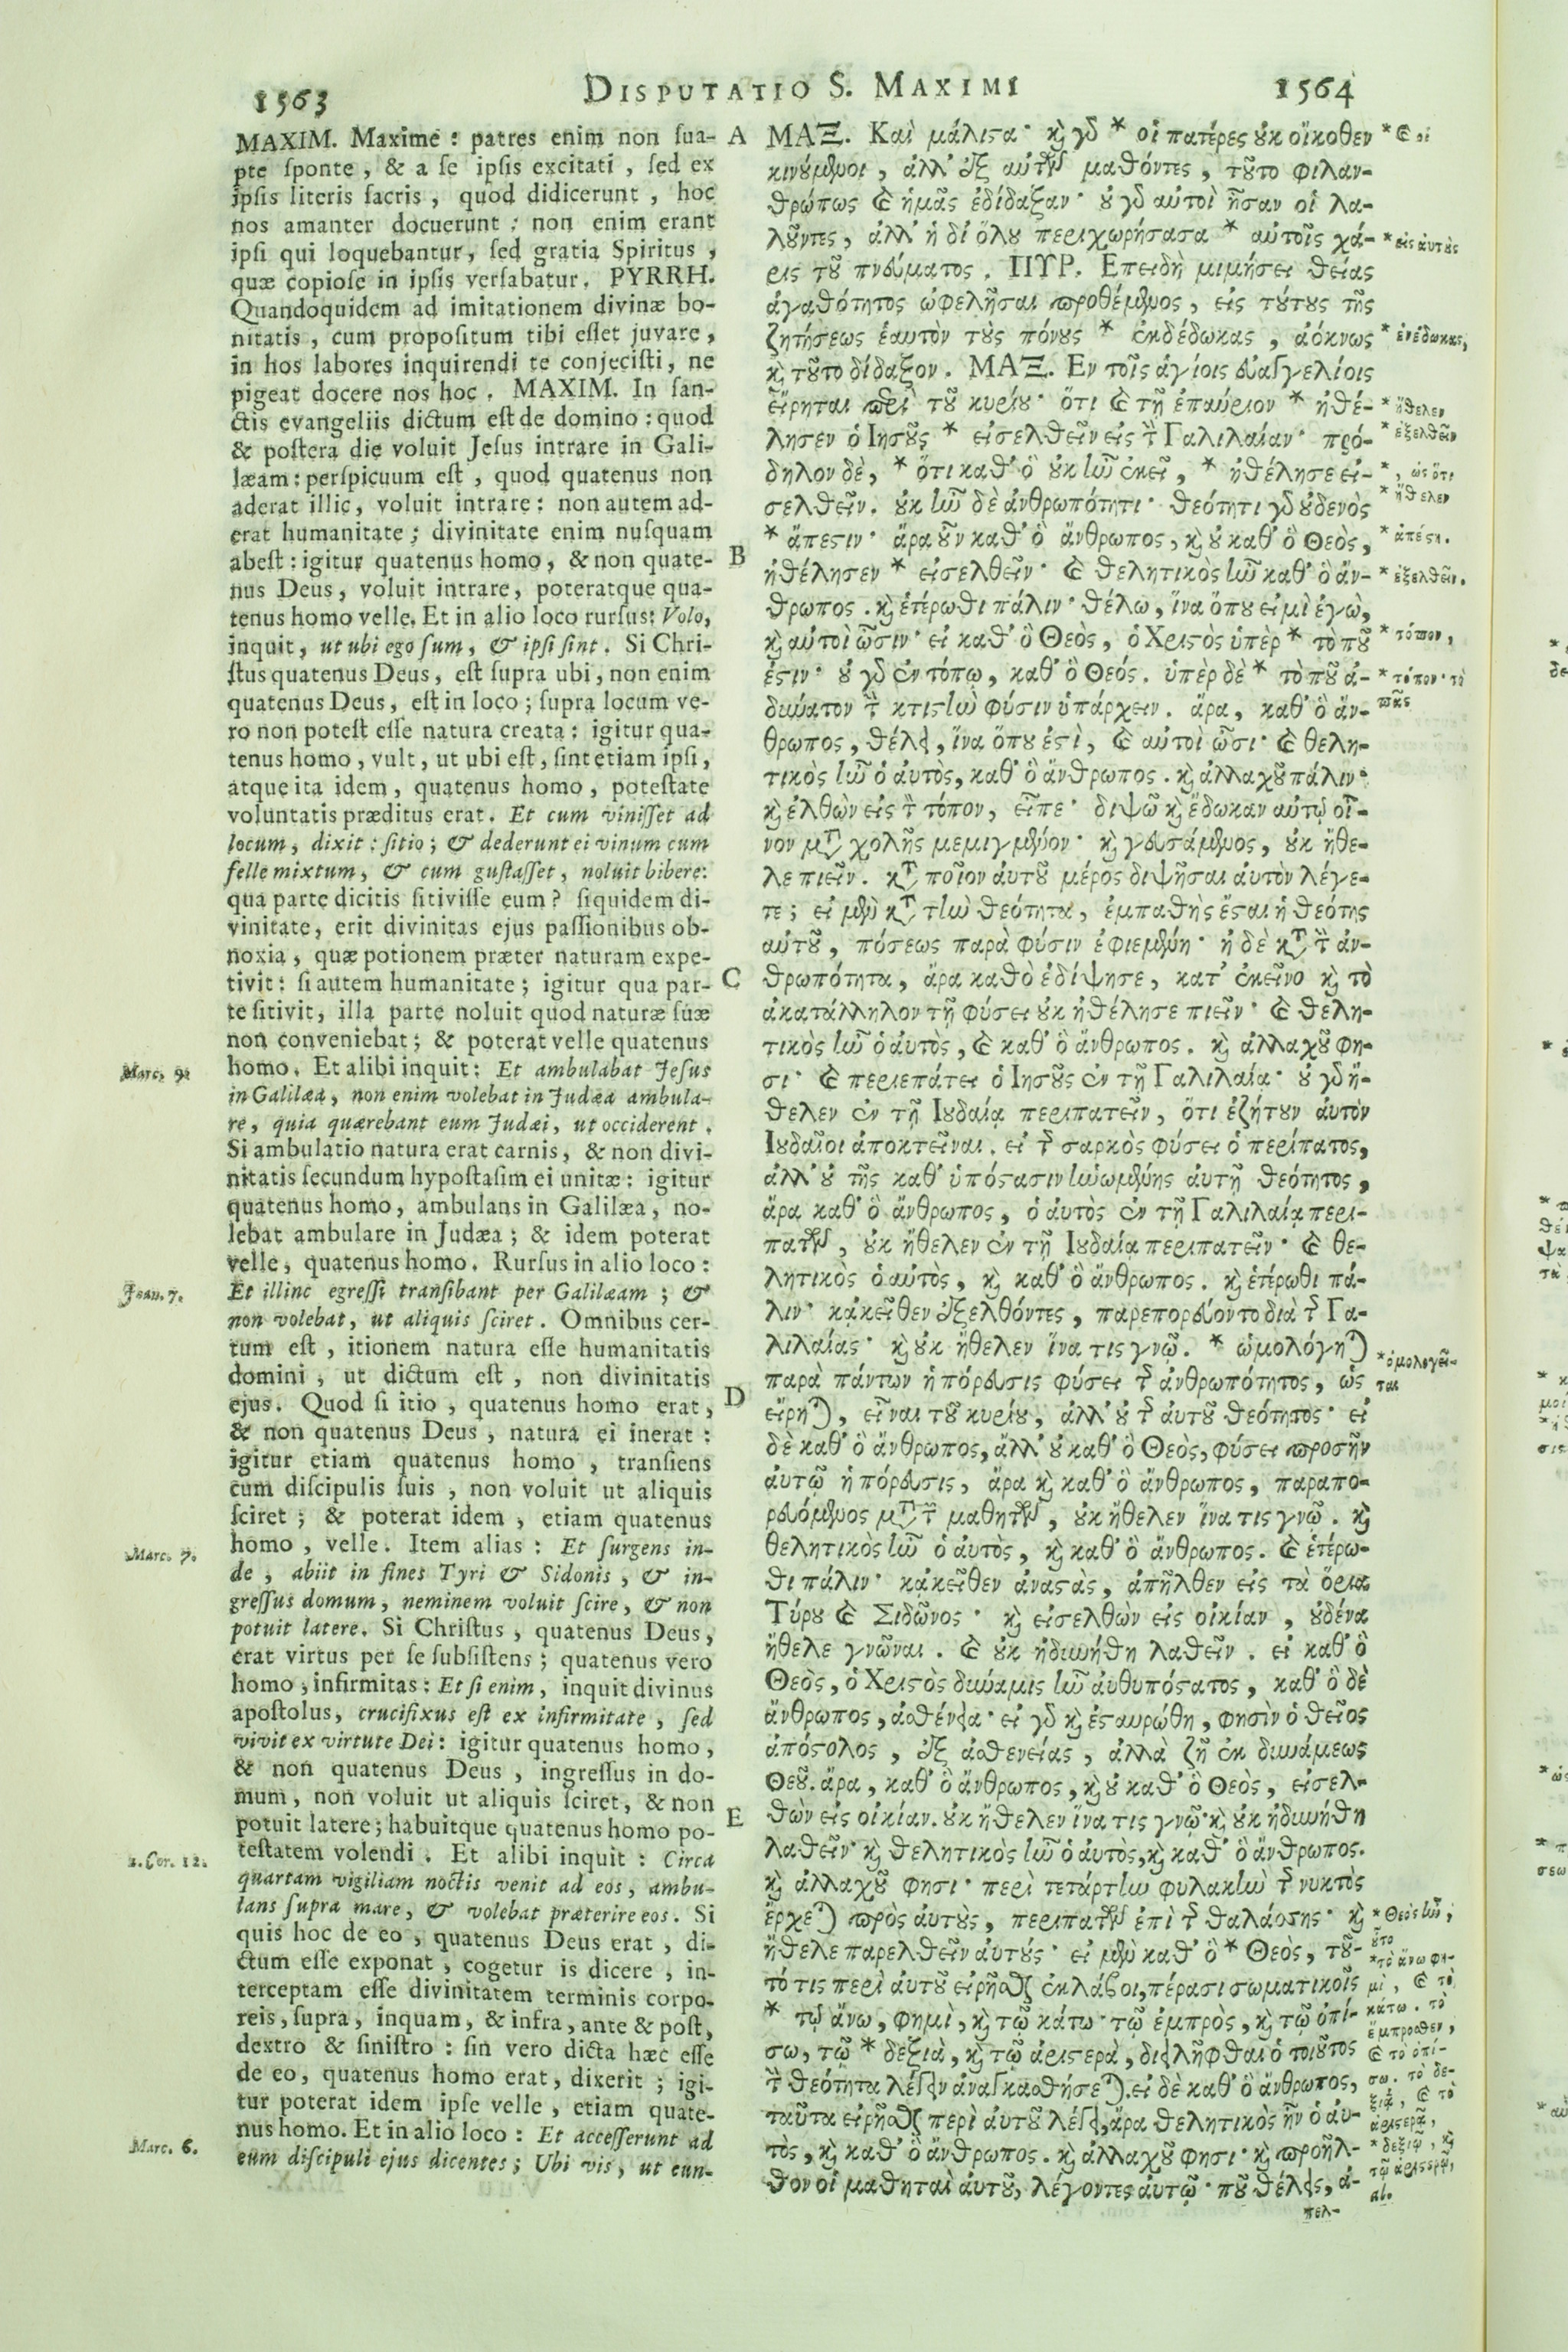 1563 DISPUTATIO S. MAXIMI 1564
MAXIM. Maxime : patres enim non sua-
pte sponte , & a se ipsis excitati , sed ex
ipsis literis sacris , quod didicerunt , hoc
nos amanter docuerunt : non enim erant
ipsi qui loquebantur, sed gratia Spiritus ,
quæ copiose in ipsis versabatur. PYRRH.
Quandoquidem ad imitationem divinæ bo-
nitatis , cum propositum tibi esset juvare ,
in hos labores inquirendi te conjecisti, ne
pigeat docere nos hoc . MAXIM. In san-
ctis evangeliis dictum est de domino : quod
& postera die voluit Jesus intrare in Gali-
læam : perspicuum est , quod quatenus non
aderat illic, voluit intrare : non autem ad-
erat humanitate ; divinitate enim nusquam
abest : igitur quatenus homo, & non quate-
nus Deus, voluit intrare, poteratque qua-
tenus homo velle. Et in alio loco rursus: Volo,
inquit, ut ubi ego sum, & ipsi sint. Si Chri-
stus quatenus Deus, est supra ubi, non enim
quatenus Deus, est in loco ; supra locum ve-
ro non potest esse natura creata : igitur qua-
tenus homo , vult, ut ubi est, sint etiam ipsi,
atque ita idem, quatenus homo, potestate
voluntatis præditus erat. Et cum vinisset ad
locum, dixit : sitio ; & dederunt ei vinum cum
felle mixtum, & cum gustasset, noluit bibere:
qua parte dicitis sitivisse eum ? siquidem di-
vinitate, erit divinitas ejus passionibus ob-
noxia, quæ potionem præter naturam expe-
tivit : si autem humanitate ; igitur qua par-
te sitivit, illa parte noluit quod naturæ suæ
non conveniebat ; & poterat velle quatenus
homo. Et alibi inquit : Et ambulabat Jesus
in Galilæa, non enim volebat in Judæa ambula-
re, quia quærebant eum Judæi, ut occiderent .
Si ambulatio natura erat carnis, & non divi-
nitatis secundum hypostasim ei unitæ : igitur
quatenus homo, ambulans in Galilæa, no-
lebat ambulare in Judæa ; & idem poterat
velle, quatenus homo. Rursus in alio loco :
Et illinc egressi transibant per Galilæam ; &
non volebat, ut aliquis sciret. Omnibus cer-
tum est , itionem natura esse humanitatis
domini , ut dictum est , non divinitatis
ejus. Quod si itio , quatenus homo erat ,
& non quatenus Deus , natura ei inerat :
igitur etiam quatenus homo , transiens
cum discipulis suis , non voluit ut aliquis
sciret ; & poterat idem , etiam quatenus
homo , velle. Item alias : Et surgens in-
de , abiit in fines Tyri & Sidonis , & in-
gressus domum, neminem voluit scire, & non
potuit latere. Si Christus , quatenus Deus,
erat virtus per se subsistens ; quatenus vero
homo , infirmitas : Et si enim, inquit divinus
apostolus, crucifixus est ex infirmitate , sed
vivit ex virtute Dei : igitur quatenus homo,
& non quatenus Deus , ingressus in do-
mum, non voluit ut aliquis sciret, & non
potuit latere ; habuitque quatenus homo po-
testatem volendi . Et alibi inquit : Circa
quartam vigiliam noctis venit ad eos, ambu-
lans supra mare, & volebat præterire eos. Si
quis hoc de eo , quatenus Deus erat , di-
ctum esse exponat , cogetur is dicere , in-
terceptam esse divinitatem terminis corpo-
reis, supra, inquam, & infra, ante & post,
dextro & sinistro : sin vero dicta hæc esse
de eo, quatenus homo erat, dixerit ; igi-
tur poterat idem ipse velle , etiam quate-
nus homo. Et in alio loco : Et accesserunt ad
eum discipuli ejus dicentes ; Ubi vis, ut eun-
Marc, 9.
Joan. 7.
Marc. 7.
2. Cor. 12.
Marc. 6.
A
B
C
D
E
ΜΑΞ. Καὶ μάλιστα· καὶ γὰρ * οἱ πατέρες οὐκ οἴκοθεν
κινούμενοι , ἀλλ' ἐξ αὐτῶν μαθόντες , τοῦτο φιλαν-
θρώπως καὶ ἡμᾶς ἐδίδαξαν· οὐ γὰρ αὐτοὶ ἦσαν οἱ λα-
λοῦντες, ἀλλ' ἡ δι' ὅλου περιχωρήσασα * αὐτοῖς χά-
ρις τοῦ πνεύματος . ΠΥΡ. Επειδὴ μιμήσει θείας
ἀγαθότητος ὠφελῆσαι προθέμενος, εἰς τούτους τῆς
ζητήσεως ἑαυτὸν τοὺς πόνους * ἐκδέδωκας , ἀόκνως
καὶ τοῦτο δίδαξον . ΜΑΞ. Εν τοῖς ἁγίοις εὐαγγελίοις
εἴρηται περὶ τοῦ κυρίου· ὅτι καὶ τῇ ἐπαύριον * ἠθέ-
λησεν ὁ Ιησοῦς * εἰσελθεῖν εἰς τὴν Γαλιλαίαν· πρό-
δηλον δὲ, * ὅτι καθ' ὃ οὐκ ἦν ἐκεῖ , * ἠθέλησε εἰ-
σελθεῖν. οὐκ ἦν δὲ ἀνθρωπότητι· θεότητι γὰρ οὐδενὸς
* ἄπεστιν· ἄρα οὖν καθ' ὃ ἄνθρωπος, καὶ οὐ καθ' ὃ Θεὸς,
ἠθέλησεν * εἰσελθεῖν· καὶ θελητικὸς ἦν καθ' ὃ ἄν-
θρωπος . καὶ ἑτέρωθι πάλιν· θέλω, ἵνα ὅπου εἰμὶ ἐγὼ,
καὶ αὐτοὶ ὦσιν· εἰ καθ' ὃ Θεὸς, ὁ Χριστὸς ὑπὲρ * τὸ ποῦ
ἐστιν· οὐ γὰρ ἐν τόπῳ, καθ' ὃ Θεός. ὑπὲρ δὲ * τὸ ποῦ ἀ-
δύνατον τὴν κτιστὴν φύσιν ὑπάρχειν. ἄρα, καθ' ὃ ἄν-
θρωπος, θέλει, ἵνα ὅπου ἐστὶ, καὶ αὐτοὶ ὦσι· καὶ θελη-
τικὸς ἦν ὁ αὐτὸς, καθ' ὃ ἄνθρωπος . καὶ ἀλλαχοῦ πάλιν·
καὶ ἐλθὼν εἰς τὸν τόπον, εἶπε· διψῶ καὶ ἔδωκαν αὐτῷ οἶ-
νον μετὰ χολῆς μεμιγμένον· καὶ γευσάμενος, οὐκ ἤθε-
λε πιεῖν. κατὰ ποῖον αὐτοῦ μέρος διψῆσαι αὐτὸν λέγε-
τε ; εἰ μὲν κατὰ τὴν θεότητα, ἐμπαθὴς ἔσται ἡ θεότης
αὐτοῦ , πόσεως παρὰ φύσιν ἐφιεμένη· ἢ δὲ κατὰ τὴν ἀν-
θρωπότητα, ἄρα καθὸ ἐδίψησε, κατ' ἐκεῖνο καὶ τὸ
ἀκατάλληλον τῇ φύσει οὐκ ἠθέλησε πιεῖν· καὶ θελη-
τικὸς ἦν ὁ αὐτὸς , καὶ καθ' ὃ ἄνθρωπος. καὶ ἀλλαχοῦ φη-
σι· καὶ περιεπάτει ὁ Ιησοῦς ἐν τῇ Γαλιλαίᾳ· οὐ γὰρ ἤ-
θελεν ἐν τῇ Ιουδαίᾳ περιπατεῖν, ὅτι ἐζήτουν αὐτὸν
Ιουδαῖοι ἀποκτεῖναι. εἰ τῆς σαρκὸς φύσει ὁ περίπατος,
ἀλλ' οὐ τῆς καθ' ὑπόστασιν ἡνωμένης αὐτῇ θεότητος ,
ἄρα καθ' ὃ ἄνθρωπος , ὁ αὐτὸς ἐν τῇ Γαλιλαίᾳ περι-
πατῶν , οὐκ ἤθελεν ἐν τῇ Ιουδαίᾳ περιπατεῖν· καὶ θε-
λητικὸς ὁ αὐτὸς , καὶ καθ' ὃ ἄνθρωπος. καὶ ἑτέρωθι πά-
λιν· κἀκεῖθεν ἐξελθόντες , παρεπορεύοντο διὰ τῆς Γα-
λιλαίας· καὶ οὐκ ἤθελεν ἵνα τις γνῷ. * ὡμολόγηται
παρὰ πάντων ἡ πόρευσις φύσει τῆς ἀνθρωπότητος, ὡς
εἴρηται, εἶναι τοῦ κυρίου, ἀλλ' οὐ τῆς αὐτοῦ θεότητος· εἰ
δὲ καθ' ὃ ἄνθρωπος, ἀλλ' οὐ καθ' ὃ Θεὸς, φύσει προσῆν
αὐτῷ ἡ πόρευσις, ἄρα καὶ καθ' ὃ ἄνθρωπος, παραπο-
ρευόμενος μετὰ τῶν μαθητῶν , οὐκ ἤθελεν ἵνα τις γνῷ . καὶ
θελητικὸς ἦν ὁ αὐτὸς , καὶ καθ' ὃ ἄνθρωπος. καὶ ἑτέρω-
θι πάλιν· κἀκεῖθεν ἀναστὰς, ἀπῆλθεν εἰς τὰ ὅρια
Τύρου καὶ Σιδῶνος· καὶ εἰσελθὼν εἰς οἰκίαν , οὐδένα
ἤθελε γνῶναι . καὶ οὐκ ἠδυνήθη λαθεῖν . εἰ καθ' ὃ
Θεὸς, ὁ Χριστὸς δύναμις ἦν αὐθυπόστατος , καθ' ὃ δὲ
ἄνθρωπος, ἀσθένεια· εἰ γὰρ καὶ ἐσταυρώθη, φησὶν ὁ θεῖος
ἀπόστολος , ἐξ ἀσθενείας , ἀλλὰ ζῇ ἐκ δυνάμεως
Θεοῦ. ἄρα, καθ' ὃ ἄνθρωπος, καὶ οὐ καθ' ὃ Θεὸς, εἰσελ-
θὼν εἰς οἰκίαν. οὐκ ἤθελεν ἵνα τις γνῷ· καὶ οὐκ ἠδυνήθη
λαθεῖν· καὶ θελητικὸς ἦν ὁ αὐτὸς, καὶ καθ' ὃ ἄνθρωπος.
καὶ ἀλλαχοῦ φησι· περὶ τετάρτην φυλακὴν τῆς νυκτὸς
ἔρχεται πρὸς αὐτοὺς, περιπατῶν ἐπὶ τῆς θαλάσσης· καὶ
ἤθελε παρελθεῖν αὐτούς· εἰ μὲν καθ' ὃ * Θεὸς, τοῦ-
τό τις περὶ αὐτοῦ εἰρῆσθαι ἐκλάβοι, πέρασι σωματικοῖς
* τῷ ἄνω, φημὶ, καὶ τῷ κάτω· τῷ ἐμπρὸς, καὶ τῷ ὀπί-
σω, τῷ * δεξιὰ, καὶ τῷ ἀριστερὰ, διειλῆφθαι ὁ τοιοῦτος
τὴν θεότητα λέγειν ἀναγκασθήσεται. εἰ δὲ καθ' ὃ ἄνθρωπος,
ταῦτα εἰρῆσθαι περὶ αὐτοῦ λέγει, ἄρα θελητικὸς ἦν ὁ αὐ-
τὸς, καὶ καθ' ὃ ἄνθρωπος. καὶ ἀλλαχοῦ φησι· καὶ προσῆλ-
θον οἱ μαθηταὶ αὐτοῦ, λέγοντες αὐτῷ· ποῦ θέλεις, ἀ-
πελ-
* καὶ οἱ
* εἰς αὐτοὺς
* ἐνέδωκας,
* ἤθελεν
* ἐξελθεῖν
* , ὡς ὅτι
* ἤθελεν
* ἀπέστη.
* ἐξελθεῖν.
* τόπον,
* τόπον· τὸ
πᾶς
* ὁμολογεῖ-
ται
* Θεὸς ἦν,
* τὸ ἄνω φη-
μὶ , καὶ τὸ
κάτω . τὸ
ἔμπροσθεν,
καὶ τὸ ὀπί-
σω . τὸ δε-
καὶ τὸ
* δεξιῷ , καὶ
al.